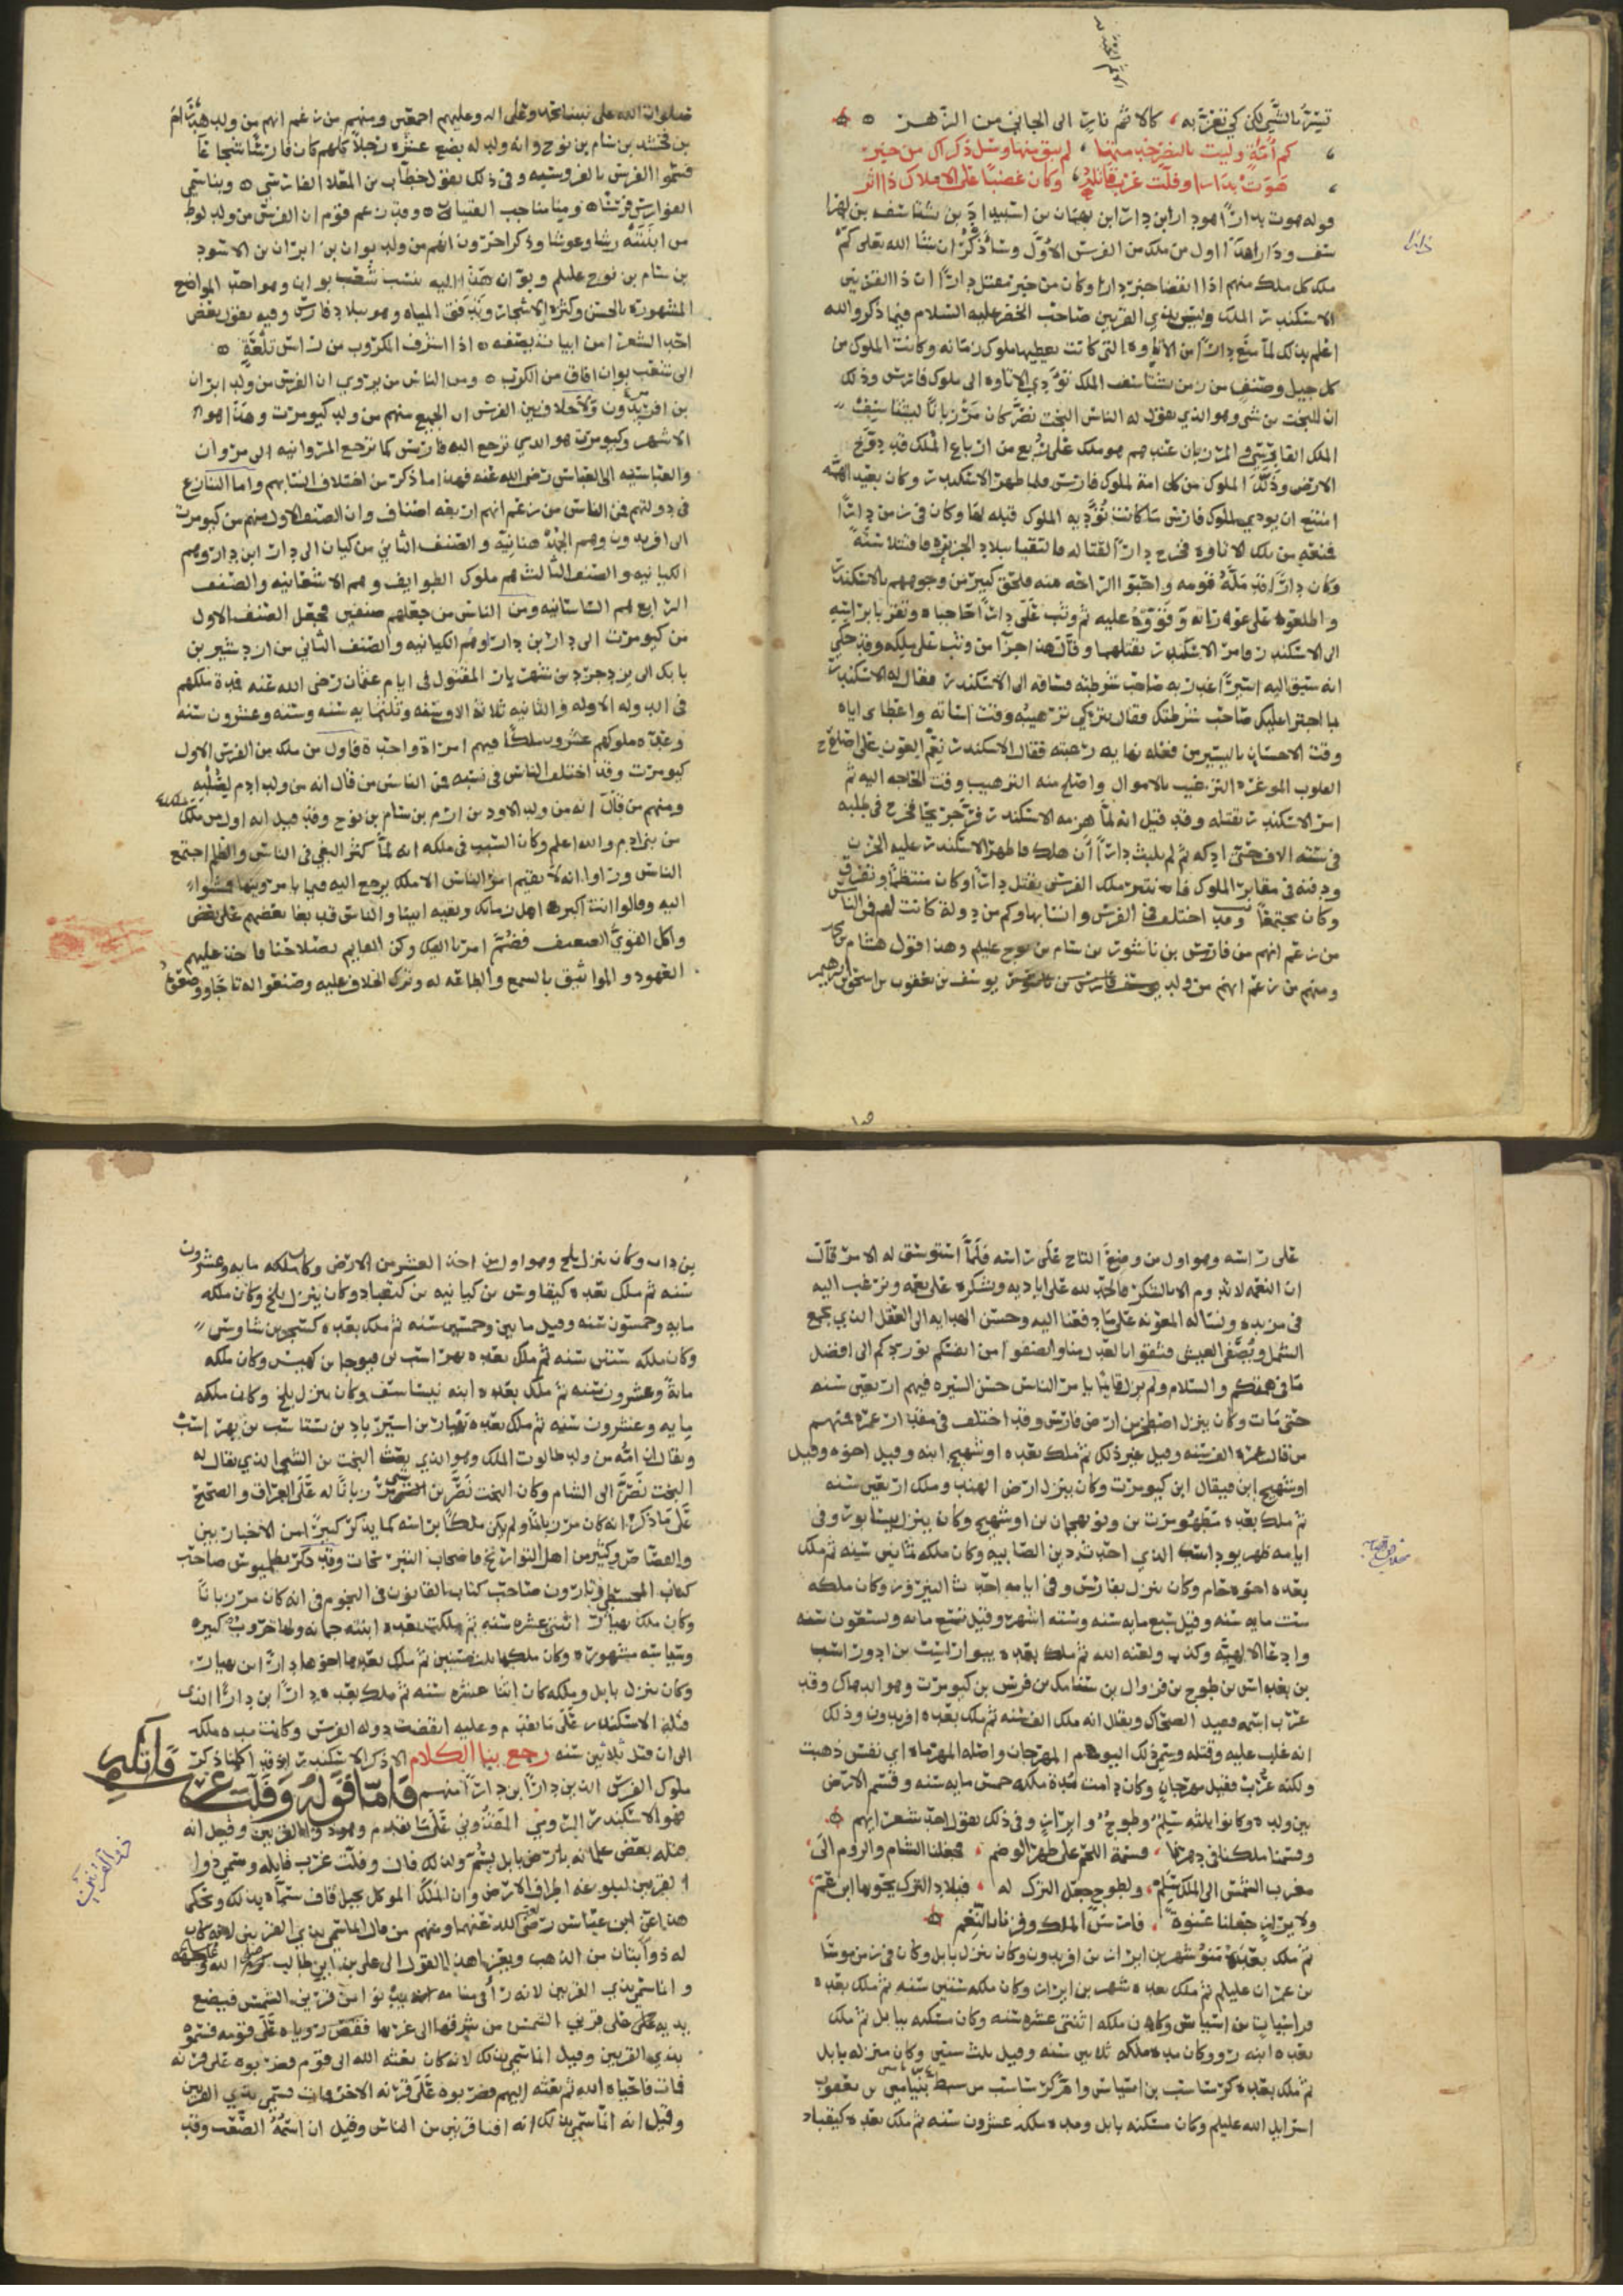 تسر بالشي لكن كي تغر به كالايم ثار الى الجاني من الزهر
كم أمة وليت بالنصر خدمتها لم تبق منها وسل ذكراك من خبر
هوت بدارا وفلت غرب قاتله وكان عضبا على الاملاك ذا اثر
قوله هوت بدارا هو دارا بن دارا بن بهمان بن اسبنديار بن بشتاسف بن لهرا
سف ودارا هذا اول من ملك من الفرس الاول وسأذكر ان شا الله تعلى كم
ملك كل ملك منهم اذا انقضا خبر دارا وكان من خبر مقتل دارا ان ذا القرنين
الاسكندر الملك وليس بذي القرنين صاحب الخضر عليه السلام فيما ذكر والله
اعلم بذلك لما منع دارا من الاتاوه التي كانت يعطيها ملوك زمانه وكانت الملوك من
كل جيل وصنف من زمن بشتاسف الملك تؤدي الاتاوه الى ملوك فارس وذلك
ان البخت بن شي وهو الذي يقول له الناس البخت نصر كان مرزبانا لبشتاسف
الملك الفارسي والمرزبان عندهم هو ملك على ربع من ارباع الملك قد دوخ
الارض وذلل الملوك من كل امة لملوك فارس فلما ظهر الاسكندر وكان بعيد الهمه
امتنع ان يودي لملوك فارس ما كانت تؤديه الملوك قبله لها وكان في زمن دارا
فمنعه من تلك الاتاوه فخرج دارا لقتاله فالتقيا ببلاد الجزيره فاقتتلا سنة
وكان دارا قد مله قومه واحبوا الراحه منه فلحق كبير من وجوههم بالاسكندر
واطلعوه على عورته وقووه عليه ثم وثب على دارا حاجباه وتقربا براسه
الى الاسكندر فامر الاسكندر بقتلهما وقال هذا جزا من وثب على ملكه وقد حكي
انه سيق اليه اسيرا غدر به صاحب شرطته فساقه الى الاسكندر فقال له الاسكندر
بما اجترا عليك صاحب شرطتك فقال بتركي ترهيبه وقت اساته واعطاي اياه
وقت الاحسان باليسير من فعله نهايه رغبته فقال الاسكندر نعم العون على اصلاح
القلوب الموغره الترغيب بالاموال واصلح منه الترهيب وقت الحاجه اليه ثم
امر الاسكندر بقتله وقد قيل انه لما هزمه الاسكندر فر جريحا فخرج في طلبه
في سته الاف حتى ادركه ثم لم يلبث دارا ان هلك فاظهر الاسكندر عليه الحزن
ودفنه في مقابر الملوك فانتثر ملك الفرس بقتل دارا وكان منتظما وتفرق
وكان مجتمعا وقد اختلف في الفرس وانسابها وكم من دولة كانت لهم فمن الناس
من زعم انهم من فارس بن ناسور بن سام بن نوح عليلم وهذا قول هشام بن محمد
ومنهم من زعم انهم من ولد يوسف بن يعقوب بن اسحق بن ابرهيم
صلوات الله على نبينا محمد وعلى اله وعليهم اجمعين ومنهم من زعم انهم من ولد هدرام
بن ارفخشد بن سام بن نوح وانه ولد له بضع عشره رجلا كلهم كان فارسا شجاعا
فسموا الفرس بالفروسيه وفي ذلك يقول خطاب بن المعلا الفارسي وبنا سمي
الفوارس فرسانا ومنا مناجب الفتيان وقد زعم قوم ان الفرس من ولد لوط
من ابنتيه رشا وعوشا وذكر اخرون انهم من ولد بوان بن ايران بن الاسود
بن سام بن نوح عليلم وبوان هذا اليه ينسب شعب بوان وهو احد المواضع
المشهوره بالحسن وكثره الاشجار وتدفق المياه وهو ببلاد فارس وفيه يقول بعض
احد الشعرا من ابيات يصفه اذا اشرف المكروب من راس تلعة
الى شعب بوان افاق من الكرب ومن الناس من يروي ان الفرس من ولد ايران
بن افريدون ولا خلاف بين الفرس ان الجميع منهم من ولد كيومرت وهذا هو
الاشهر وكيومرت هو الذي ترجع اليه فارس كما ترجع المروانيه الى مروان
والعباسيه الى العباس رضى الله عنه فهذا ما ذكر من اختلاف انسابهم واما التنازع
في دولتهم فمن الناس من زعم انهم اربعه اصناف وان الصنف الاول منهم من كيومرت
الى افريدون وهم الجدهانيه والصنف الثاني من كيان الى دارا ابن دارا وهم
الكيانيه والصنف الثالث هم ملوك الطوايف وهم الاشغانيه والصنف
الرابع هم الساسانيه ومن الناس من جعلهم صنفين فجعل الصنف الاول
من كيومرت الى دارا بن دارا وهم الكيانيه والصنف الثاني من اردشير بن
بابك الى يزدجرد بن شهريار المقتول في ايام عثمان رضى الله عنه فمدة ملكهم
في الدوله الاوله والثانيه ثلاثة الاف سنه وثلثمايه سنه وسته وعشرون سنه
وعدد ملوكهم عشرون ملكا فيهم امراة واحدة فاول من ملك من الفرس الاول
كيومرت وقد اختلف الناس في نسبه فمن الناس من قال انه من ولد ادم لصلبه
ومنهم من قال انه من ولد لاود بن ارم بن سام بن نوح وقد قيل انه اول من ملك
من بني ادم والله اعلم وكان السبب في ملكه انه لما كثر البغي في الناس والظلم اجتمع
الناس وراوا انه لا يقيم امر الناس الا ملك يرجع اليه فيما يامر وينها فمشوا
اليه وقالوا انت اكبر اهل زمانك وبقيه ابينا والناس قد بغا بعضهم على بعض
واكل القوي الضعيف فضم امرنا اليك وكن القايم بصلاحنا فاخذ عليهم
العهود والمواثيق بالسمع والطاعه له وترك الخلاف عليه وصنعوا له تاجا ووضعوه
على راسه وهو اول من وضع التاج على راسه فلما استوسق له الامر قال
ان النعمه لا تدوم الا بالشكر فالحمد لله على اياديه ونشكره على نعمه ونرغب اليه
في مزيده ونساله المعونه على ما دفعنا اليه وحسن الهدايه الى العقل الذي يجمع
الشمل ويصفي العيش فثقوا بالعدل منا وانصفونا من انفسكم نوردكم الى افضل
ما في هممكم والسلام ولم يزل قايما بامر الناس حسن السيره فيهم اربعين سنه
حتى مات وكان ينزل اصطخر من ارض فارس وقد اختلف في مقدار عمره فمنهم
من قال عمره الف سنه وقيل غير ذلك ثم ملك بعده اوشهنج ابنه وقيل اخوه وقيل
اوشهنج ابن فيقال ابن كيومرت وكان ينزل ارض الهند وملك اربعين سنه
ثم ملك بعده طهمورت بن ونوبهجان بن اوشهنج وكان ينزل بيسابور وفي
ايامه ظهر بوداسف الذي احدث دين الصابيه وكان ملكه ثلثين سنه ثم ملك
بعده اخوه جام وكان ينزل بفارس وفي ايامه احدث النيروز وكان ملكه
ست مايه سنه وقيل سبع مايه سنه وسته اشهر وقيل تسع مايه وستعون سنه
وادعا الالهيه وكذب ولعنه الله ثم ملك بعده بيوراسب بن ادوراسب
بن بغداس بن طوج بن فروال بن سيامك بن فرس بن كيومرت وهو الدهاك وقد
عرب اسمه فصير الضحاك ويقال انه ملك الف سنه ثم ملك بعده افريدون وذلك
انه غلب عليه وقتله وسمي ذلك اليوم المهرجان واصله المهرماه اي نفس ذهبت
ولكنه عرب فقيل مهرجان وكان دامت مدة ملكه خمس مايه سنه وقسم الارض
بين ولده وكانوا ثلثه سلم وطوج وايران وفي ذلك يقول احد شعرايهم
وقسمنا ملكنا في دهرنا قسمة اللحم على ظهر الوضم فجعلنا الشام والروم الى
مغرب الشمس الى الملك سلم ولطوج جعل الترك له فبلاد الترك يحويها ابن عم
ولايران جعلنا عنوة فارس الملك وفزنا بالنعم
ثم ملك بعدهم منوشهر بن ايران بن افريدون وكان ينزل بابل وكان في زمن موسا
بن عمران عليلم ثم ملك بعده شهم بن ايران وكان ملكه ستين سنه ثم ملك بعده
فراسيات بن اسياس وكان ملكه اثنتي عشره سنه وكان مسكنه ببابل ثم ملك
بعده ابنه زو وكان مده ملكه ثلاثين سنه وقيل ثلث سنين وكان منزله بابل
ثم ملك بعده كرشاسب بن اسياس وام كرشاسب من سبط بنيامين بن يعقوب
اسرايل الله عليلم وكان مسكنه بابل ومده ملكه عشرون سنه ثم ملك بعده كيقباد
بن داب وكان ينزل بلخ وهو اول من اخذ العشر من الارض وكان ملكه مايه وعشرون
سنه ثم ملك بعده كيقاوس بن كيانيه بن كيقباد وكان ينزل بلخ وكان ملكه
مايه وخمسون سنه وقيل مايين وخمسين سنه ثم ملك بعده كيخسرو بن شاوس
وكان ملكه ستين سنه ثم ملك بعده بهراسب بن فيوجا بن كهمس وكان ملكه
مائة وعشرون سنه ثم ملك بعده ابنه نيستاسف وكان ينزل بلخ وكان ملكه
مايه وعشرون سنه ثم ملك بعده بهمان بن اسبندياد بن بستاسب بن بهراسب
ويقال ان امه من ولد طالوت الملك وهو الذي بعث البخت بن الشي الذي يقال له
البخت نصر الى الشام وكان البخت نصر مرزبانا له على العراق والصحيح
على ما ذكر انه كان مرزبانا ولم يكن ملكا براسه كما يذكر كثيرا من الاخباريين
والقصاص وكثير من اهل التواريخ واصحاب الزيجات وقد ذكر بطليموس صاحب
كتاب المجسطي وتارون صاحب كتاب القانون في النجوم في انه كان مرزبانا
وكان ملك بهمان اثنتي عشره سنه ثم ملكت بعده ابنته حمانه ولها حروب كبيره
وسياسه مشهوره وكان ملكها ثلث سنين ثم ملك بعدها اخوها دارا ابن بهمان
وكان ينزل بابل وملكه كان اثنا عشره سنه ثم ملك بعده دارا بن دارا الذي
قتله الاسكندر على ما تقدم وعليه انقضت دوله الفرس وكانت مده ملكه
الى ان قتل ثلاثين سنه رجع بنا الكلام الى ذكر الاسكندر اذ قد اكملنا ذكر
ملوك الفرس الى دارا بن دارا منهم فاما قوله وفلت غرب قاتله
فهو الاسكندر الرومي المقدوني على ما تقدم وهو ذو القرنين وقيل انه
قتله بعض غلمانه بارض بابل بسم ولذلك قال وفلت غرب قاتله وسمي ذوا
القرنين لبلوغه اطراف الارض وان الملك الموكل بجبل قاف سماه بذلك ويحكى
هذا عن ابن عباس رضى الله عنهما ومنهم من قال انما سمي بذي القرنين لانه كان
له ذوابتان من الذهب ويعزا هذا القول الى علي بن ابي طالب كرم الله وجهه
وانما سمي بذي القرنين لانه راى في منامه انه يدنوا من قرني الشمس فيضع
يديه على قرني الشمس من شرقها الى غربها فقص روياه على قومه فسموه
بذي القرنين وقيل انما سمي بذلك لانه كان بعثه الله الى قوم فضربوه على قرنه
فمات فاحياه الله ثم بعثه اليهم فضربوه على قرنه الاخر فمات فسمي بذي القرنين
وقيل انه انما سمي بذلك لانه افنا قرنين من الناس وقيل ان اسمه الصعب وقد
دارا
ذو القرنين